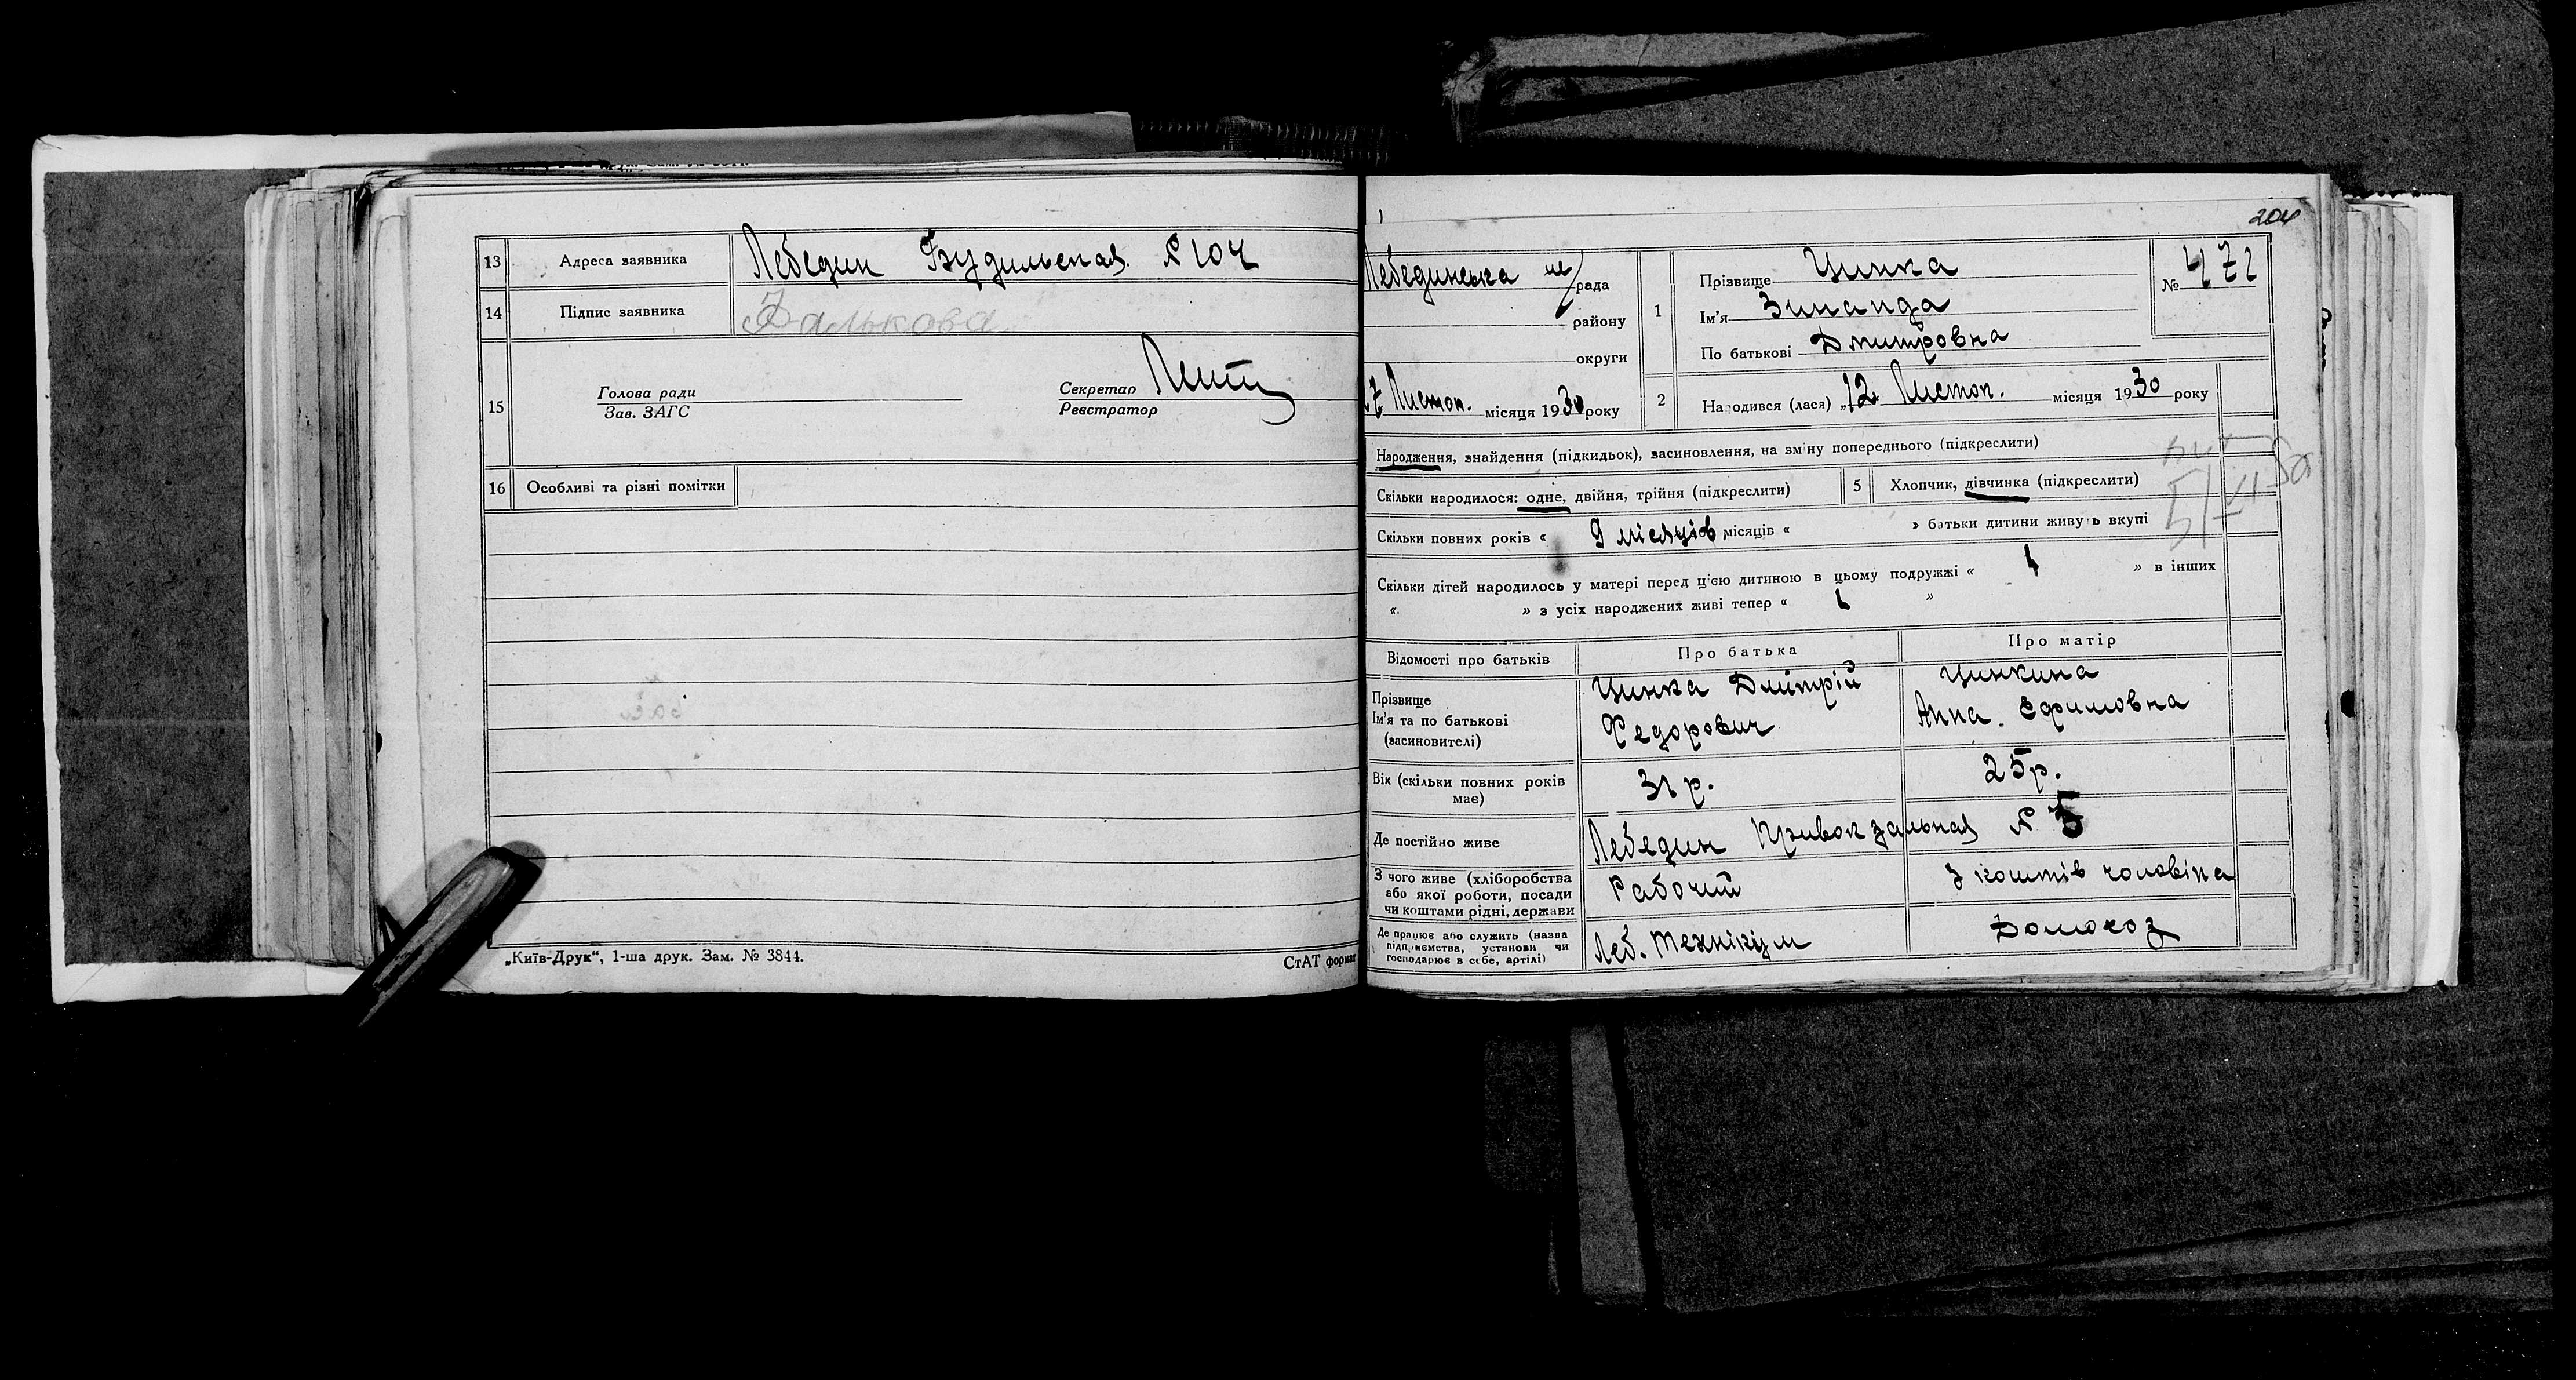 13 Адреса заявника Лебедин Будильская № 104
14 Підпис заявника Фалькова
15 Голова ради
Зав. ЗАГС
Секретар
Реєстратор
16 Особливі та різні помітки
„Київ-Друк“, 1-ша друк. Зам. № 3844.
СтАТ формат
204
Лебединська рада
району
округи
27 Листоп. місяця 1930 року
1 Прізвище Цинка
Ім'я Зинаида
По батькові Дмитровна
№ 472
2 Народився (лася) „12 Листоп. місяця 1930 року
Народження, знайдення (підкидьок), засиновлення, на зміну попереднього (підкреслити)
Скільки народилося: одне, двійня, трійня (підкреслити)
5 Хлопчик, дівчинка (підкреслити)
Скільки повних років « 9 місяців місяців « » батьки дитини живуть вкупі
Скільки дітей народилось у матері перед цією дитиною в цьому подружжі « 1 » в інших
« » з усіх народжених живі тепер « 1 »
Відомості про батьків Про батька Про матір
Прізвище
Ім'я та по батькові
(засиновителі)
Цинка Дмітрій
Федорович
Цинкина
Анна. Ефимовна
Вік (скільки повних років
має)
31 р. 25 р.
Де постійно живе Лебедин Привокзальная № 5
З чого живе (хліборобства
або якої роботи, посади
чи коштами рідні, держави
Рабочий З коштів чоловіка
Де працює або служить (назва
підприємства, установи чи
господарює в себе, артілі)
Леб. Технікум Домохоз